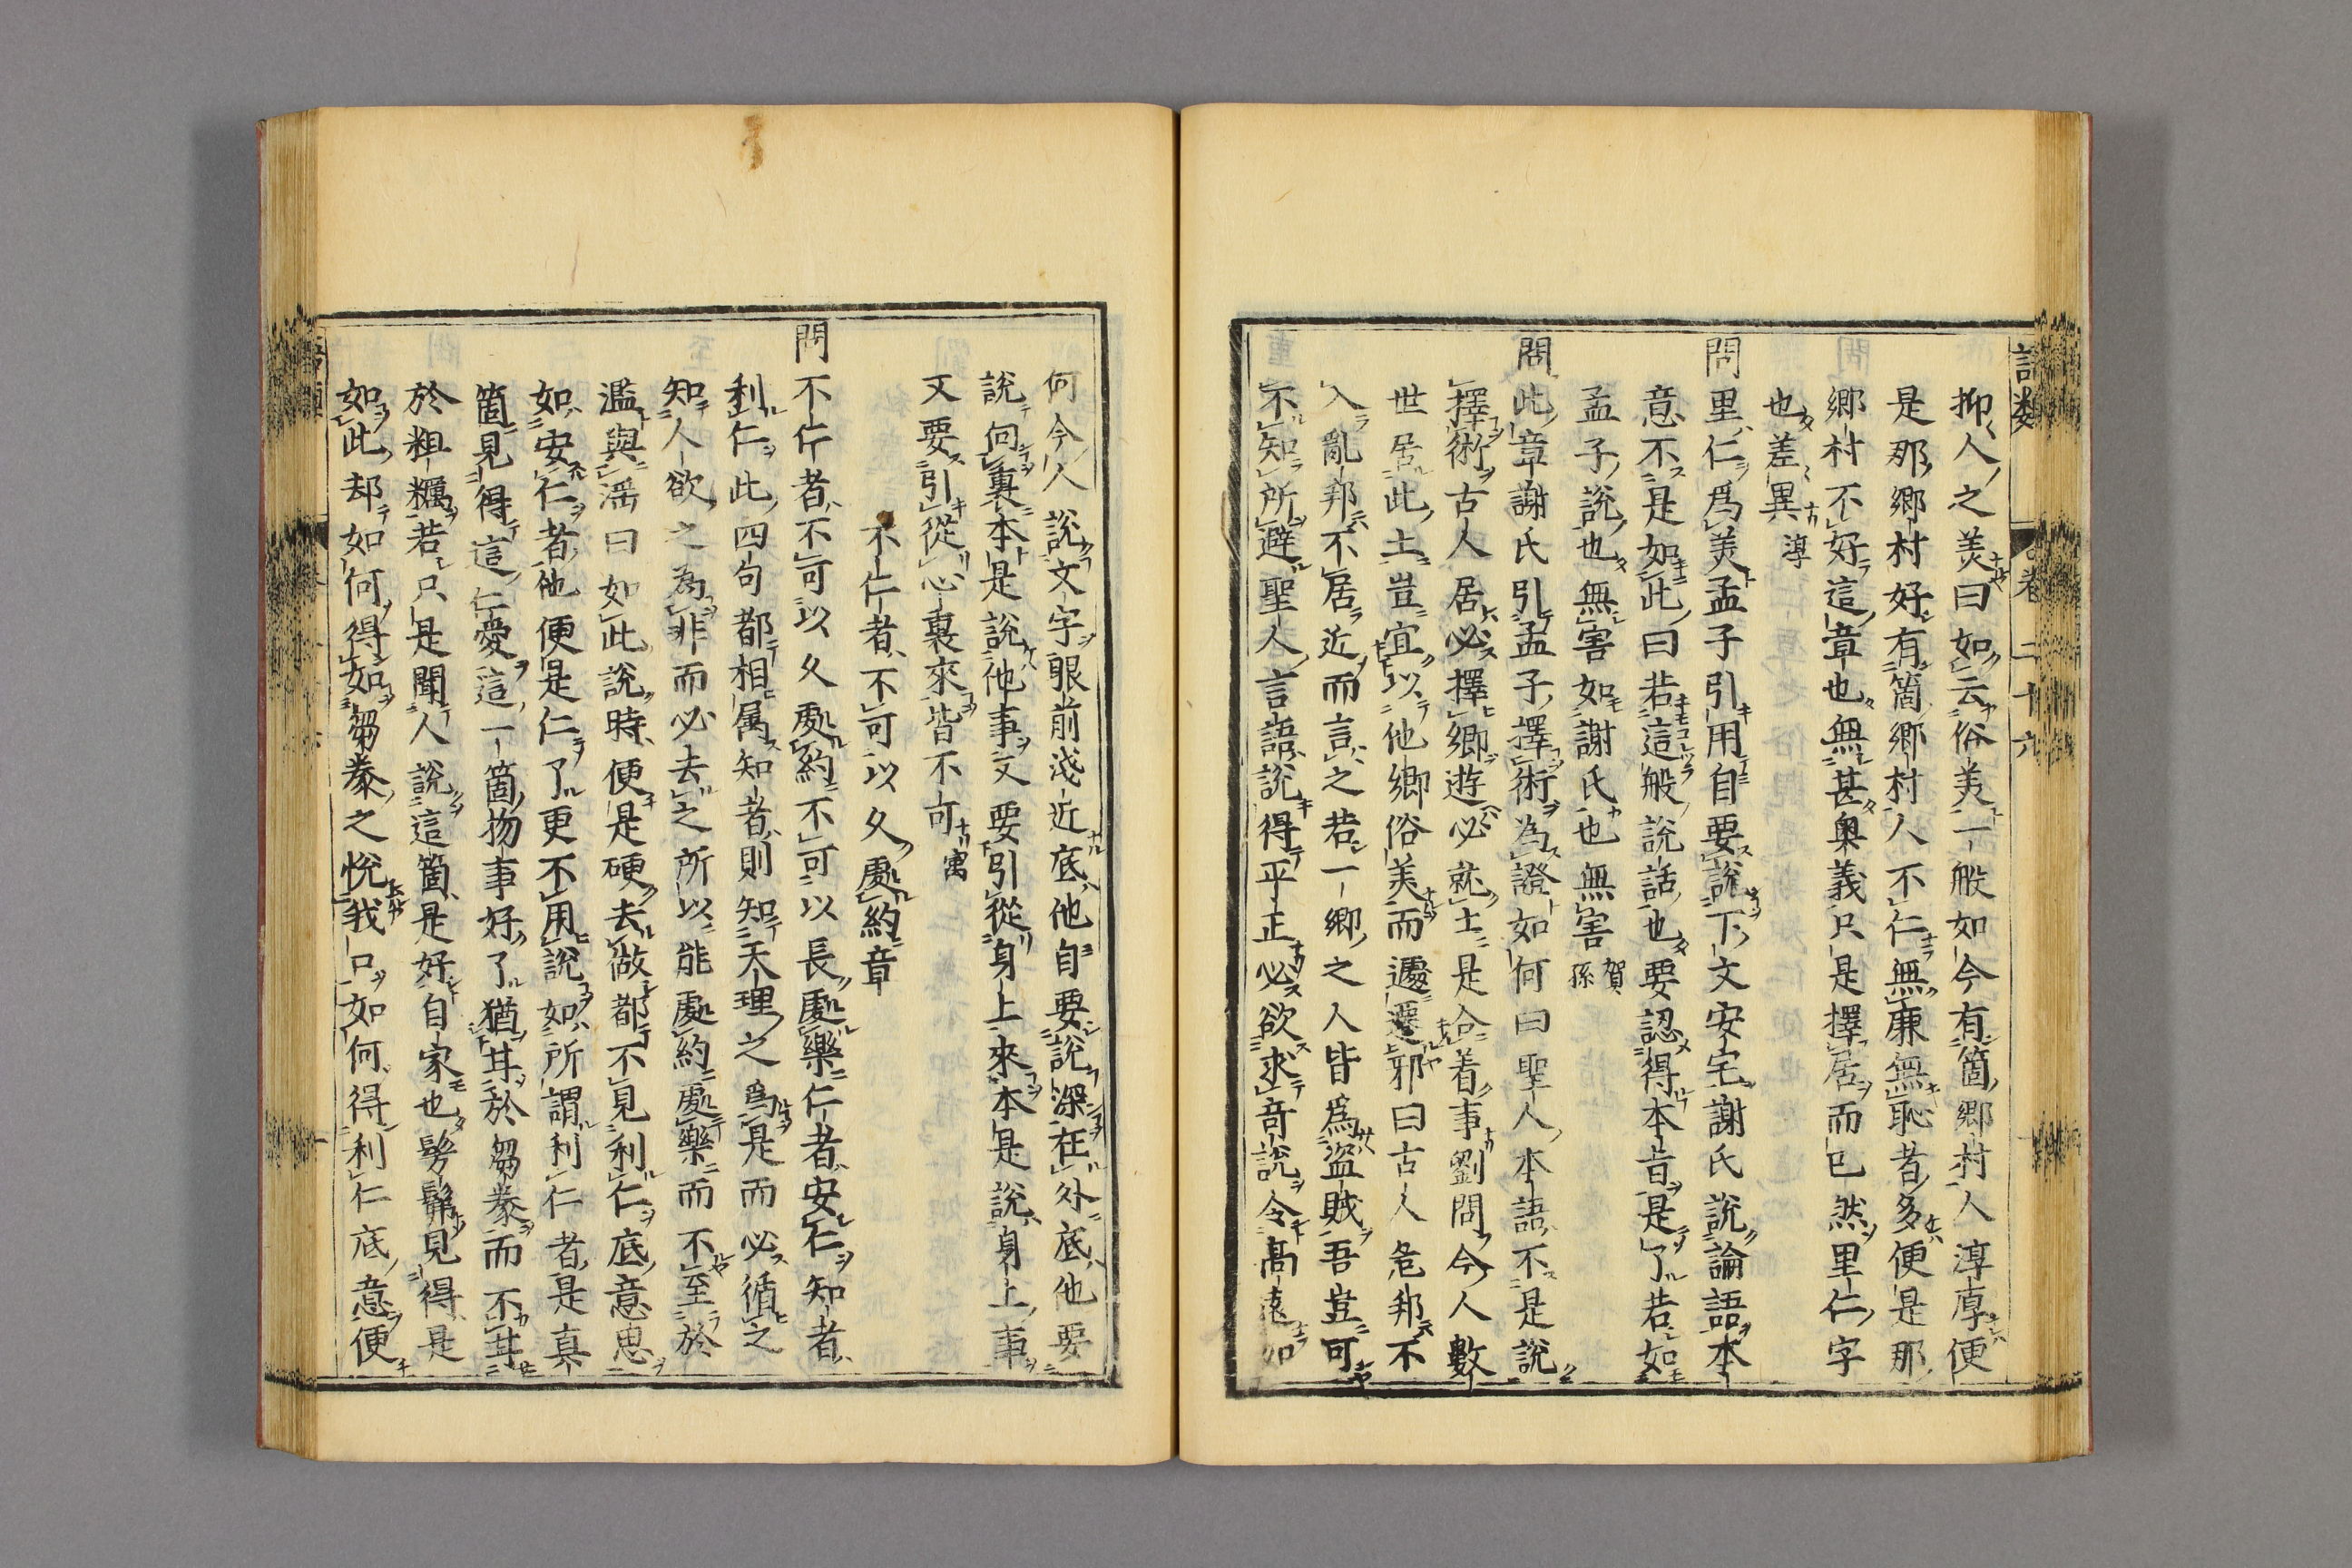 語類 卷二十六
抑人之美曰如云俗美一般如今有箇郷村人淳厚便
是那郷村好有箇郷村人不仁無廉無恥者多便是那
郷村不好這章也無甚奧義只是擇居而已然里仁字
也差異淳
問里仁爲美孟子引用自要説下文安宅謝氏説論語本
意不是如此曰若這般説話也要認得本旨是了若如
孟子説也無害如謝氏也無害賀孫
問此章謝氏引孟子擇術為證如何曰聖人本語不是説
擇術古人居必擇郷遊必就士是合着事劉問今人數
世居此土豈宜以他郷俗美而遽遷邪曰古人危邦不
入亂邦不居近而言之若一郷之人皆爲盗賊吾豈可
不知所避聖人言語説得平正必欲求竒説令髙遠如
何今人説文字眼前淺近底他自要説深在外底他要
説向裏本是説他事又要引從身上來本是説身上事
又要引從心裏來皆不可㝢
不仁者不可以久處約章
問不仁者不可以久處約不可以長處樂仁者安仁知者
利仁此四句都相属知者則知天理之爲是而必循之
知人欲之為非而必去之所以能處約處樂而不至於
濫與滛曰如此説時便是硬去做都不見利仁底意思
如安仁者他便是仁了更不用説如所謂利仁者是真
箇見得這仁愛這一箇物事好了猶甘於芻豢而不甘
於粗糲若只是聞人説這箇是好自家也髣髴見得是
如此却如何得如芻豢之悦我口如何得利仁底意便